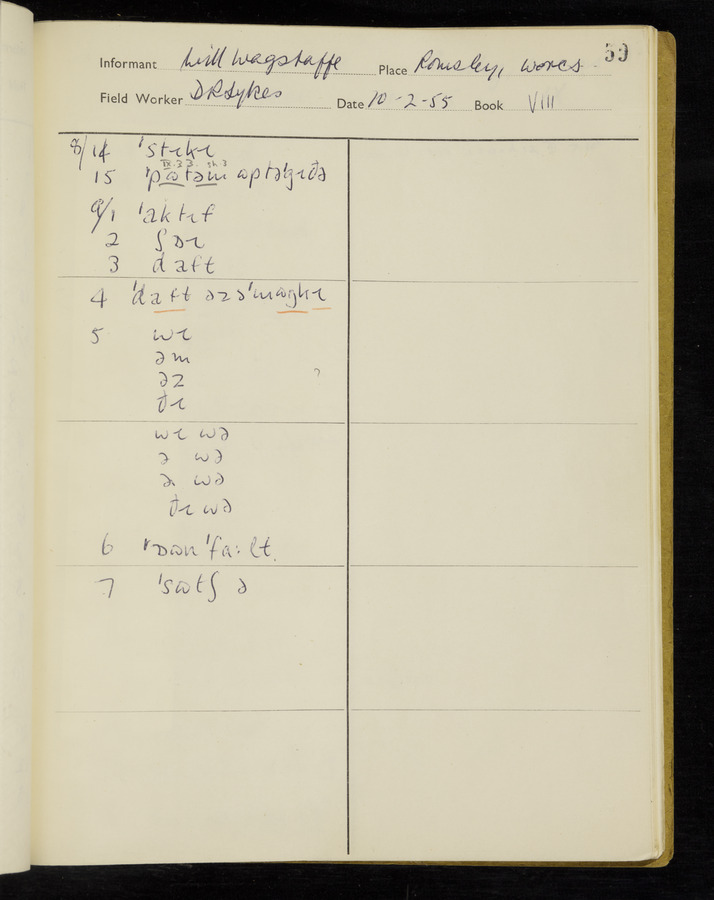 59
Informant Will Wagstaffe Place Romsley, Worcs.
Field Worker D R Sykes Date 10-2-55 Book VIII
8/14 ˈstɪkɪ
IX.3 3. sh.3
15 ˈpɷtəm ɷptəˈgɛðə
9/1 ˈaktɪf
2 ʃɒɪ
3 daft
4 ˈdaft əzəˈmɷŋkɪ
5 wɪ
əm
əz
ðɪ
wɪ wə
ə wə
ə wə
ðɪ wə
6 ɪɒɷnˈfaːlt
7 ˈsɷtʃ ə